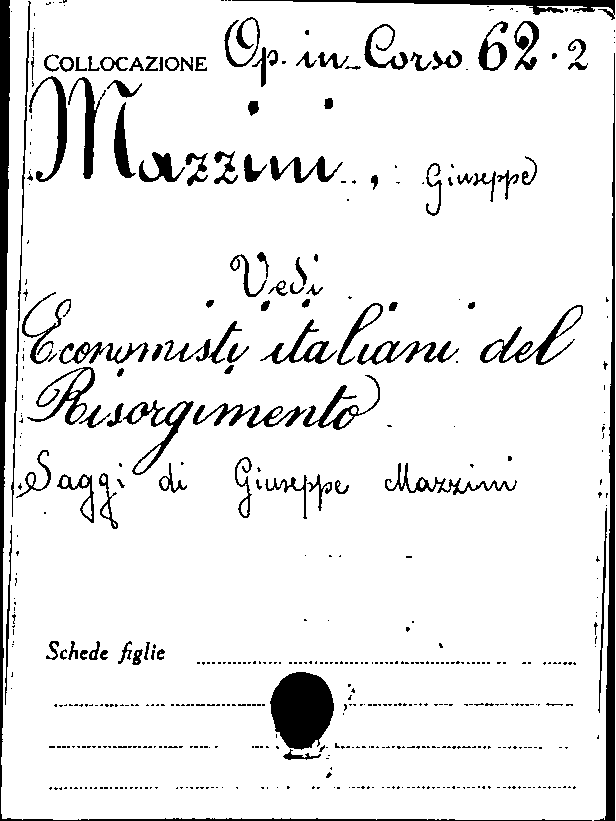 COLLOCAZIONE Op. in Corso 62.2
Mazzini, Giuseppe
Vedi
Economisti italiani del
Risorgimento
Saggi di Giuseppe Mazzini
Schede figlie